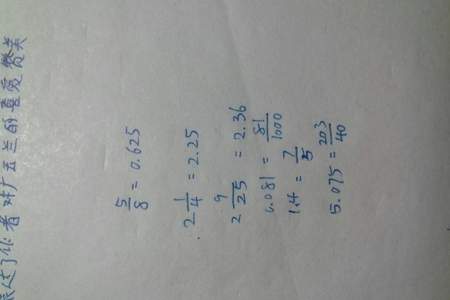 5/8 = 0.625
2 1/4 = 2.25
2 9/25 = 2.36
0.081 = 81/1000
1.4 = 7/5
5.075 = 203/40